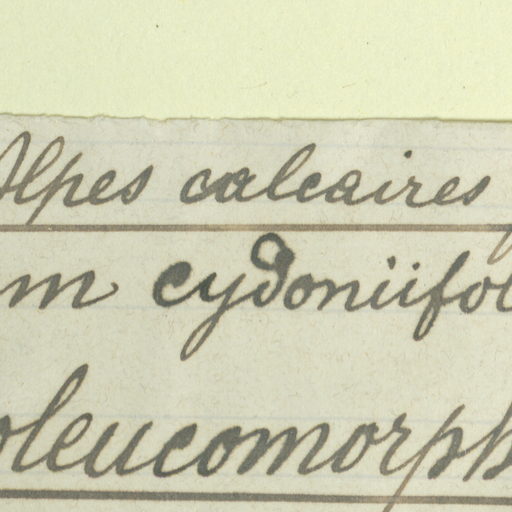 Alpes calcaires
m cydoniifol
oleucomorph